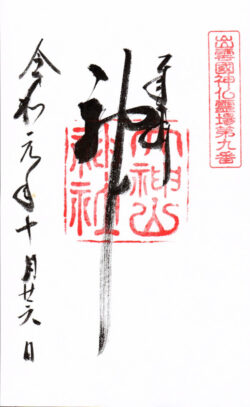 出雲國神仏靈場第九番
奉拝
神
大神山
神社
令和元年十月廿六日